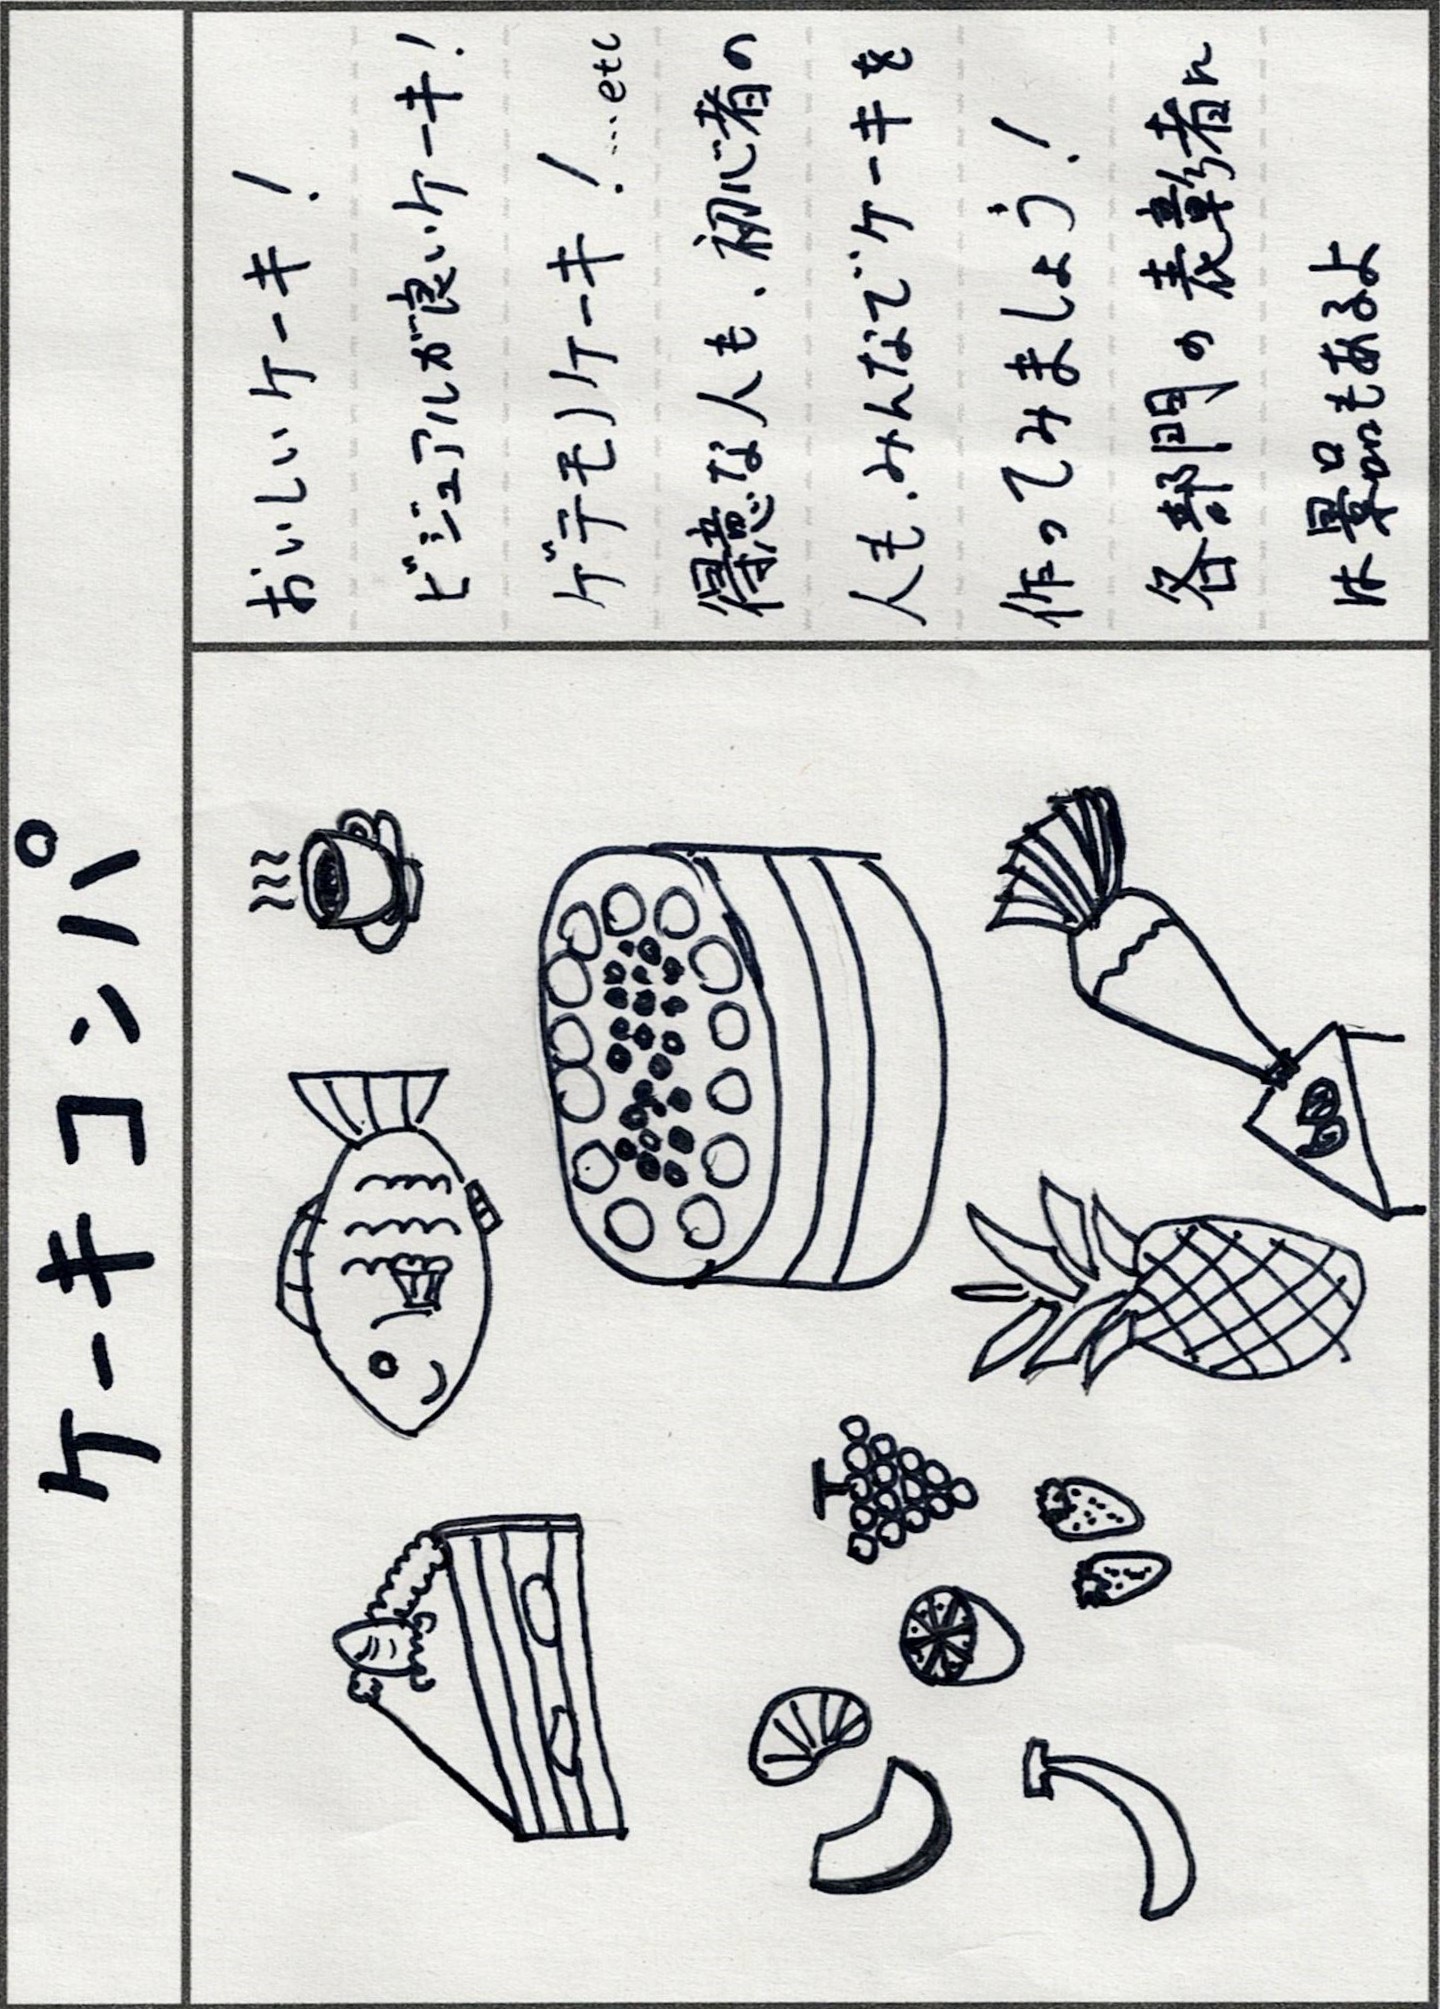 ケーキコンパ
おいしいケーキ!
ビジュアルが良いケーキ!
ゲテモノケーキ!…etc
得意な人も、初心者の
人も、みんなでケーキを
作ってみましょう!
各部門の表彰者に
は景品もあるよ